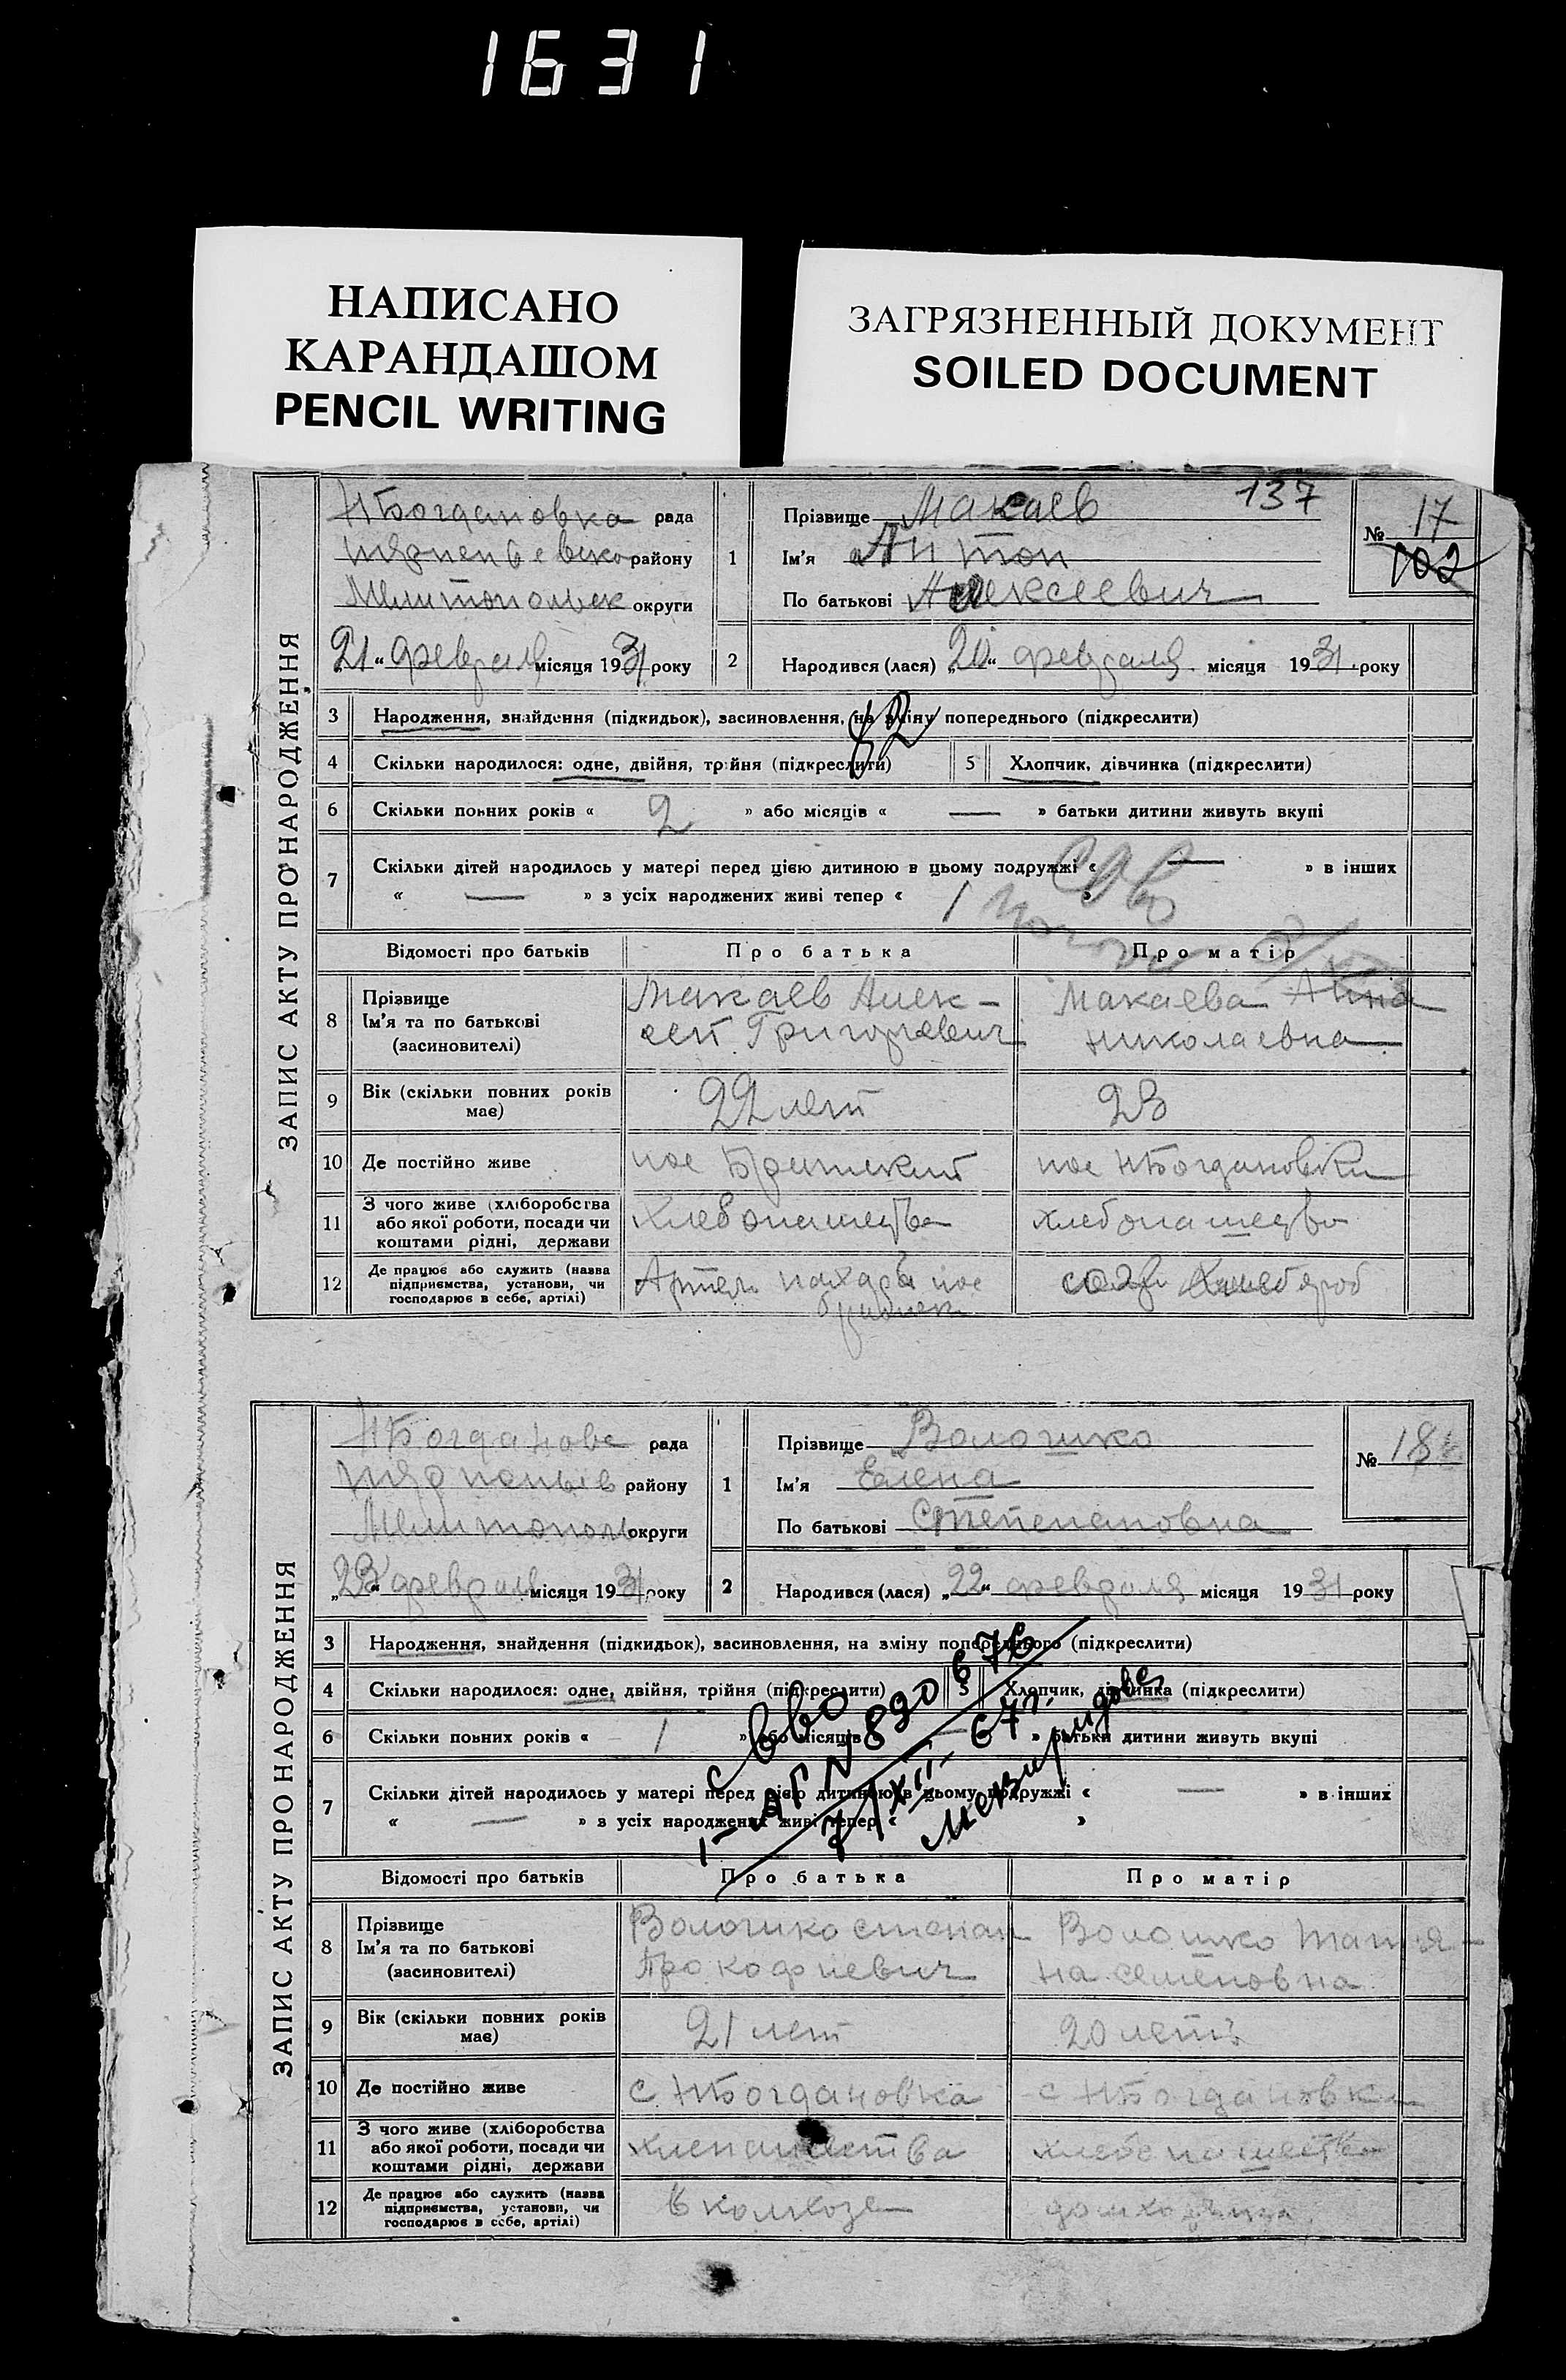 1631
НАПИСАНО
КАРАНДАШОМ
PENCIL WRITING
ЗАГРЯЗНЕННЫЙ ДОКУМЕНТ
SOILED DOCUMENT
ЗАПИС АКТУ ПРО НАРОДЖЕННЯ
137
НБогдановка рада
району
Мелитопольск округи
„21“ февраля місяця 1931 року
1
Прізвище Макаев
Ім'я Антон
По батькові Алексеевич
№ 17
102
2 Народився (лася) „20“ февраля місяця 1931 року
3 Народження, знайдення (підкидьок), засиновлення, на зміну попереднього (підкреслити)
4 Скільки народилося: одне, двійня, трійня (підкреслити) 5 Хлопчик, дівчинка (підкреслити)
6 Скільки повних років « 2 » або місяців « — » батьки дитини живуть вкупі
7 Скільки дітей народилось у матері перед цією дитиною в цьому подружжі « — » в інших
« — » з усіх народжених живі тепер « 1 »
Відомості про батьків Про батька Про матір
8 Прізвище
Ім'я та по батькові
(засиновителі)
Макаев Алек-
сей Григорьевич
Макаева Анна
Николаевна
9 Вік (скільки повних років
має) 22 лет 23
10 Де постійно живе пос нБогдановки
11 З чого живе (хліборобства
або якої роботи, посади чи
коштами рідні, держави
хлебопашества хлебопашество
12 Де працює або служить (назва
підприємства, установи, чи
господарює в себе, артілі)
Артель пос
ЗАПИС АКТУ ПРО НАРОДЖЕННЯ
НБогданове рада
району
Мелитополь округи
„23“ февраля місяця 1931 року
1
Прізвище Волошко
Ім'я Елена
По батькові Степепановна
№ 18
2 Народився (лася) „22“ февраля місяця 1931 року
3 Народження, знайдення (підкидьок), засиновлення, на зміну попереднього (підкреслити)
4 Скільки народилося: одне, двійня, трійня (підкреслити) 5 Хлопчик, дівчинка (підкреслити)
6 Скільки повних років « 1 » або місяців « — » батьки дитини живуть вкупі
7 Скільки дітей народилось у матері перед цією дитиною в цьому подружжі « — » в інших
« — » з усіх народжених живі тепер « »
с вво
1-АГ N 890676
7/XII-67г.
Відомості про батьків Про батька Про матір
8 Прізвище
Ім'я та по батькові
(засиновителі)
Волошко степан
Прокофиевич
Волошко Татья-
на семеновна
9 Вік (скільки повних років
має) 21 лет 20 летъ
10 Де постійно живе с НБогдановка с НБогдановка
11 З чого живе (хліборобства
або якої роботи, посади чи
коштами рідні, держави
12 Де працює або служить (назва
підприємства, установи, чи
господарює в себе, артілі)
В колхозе